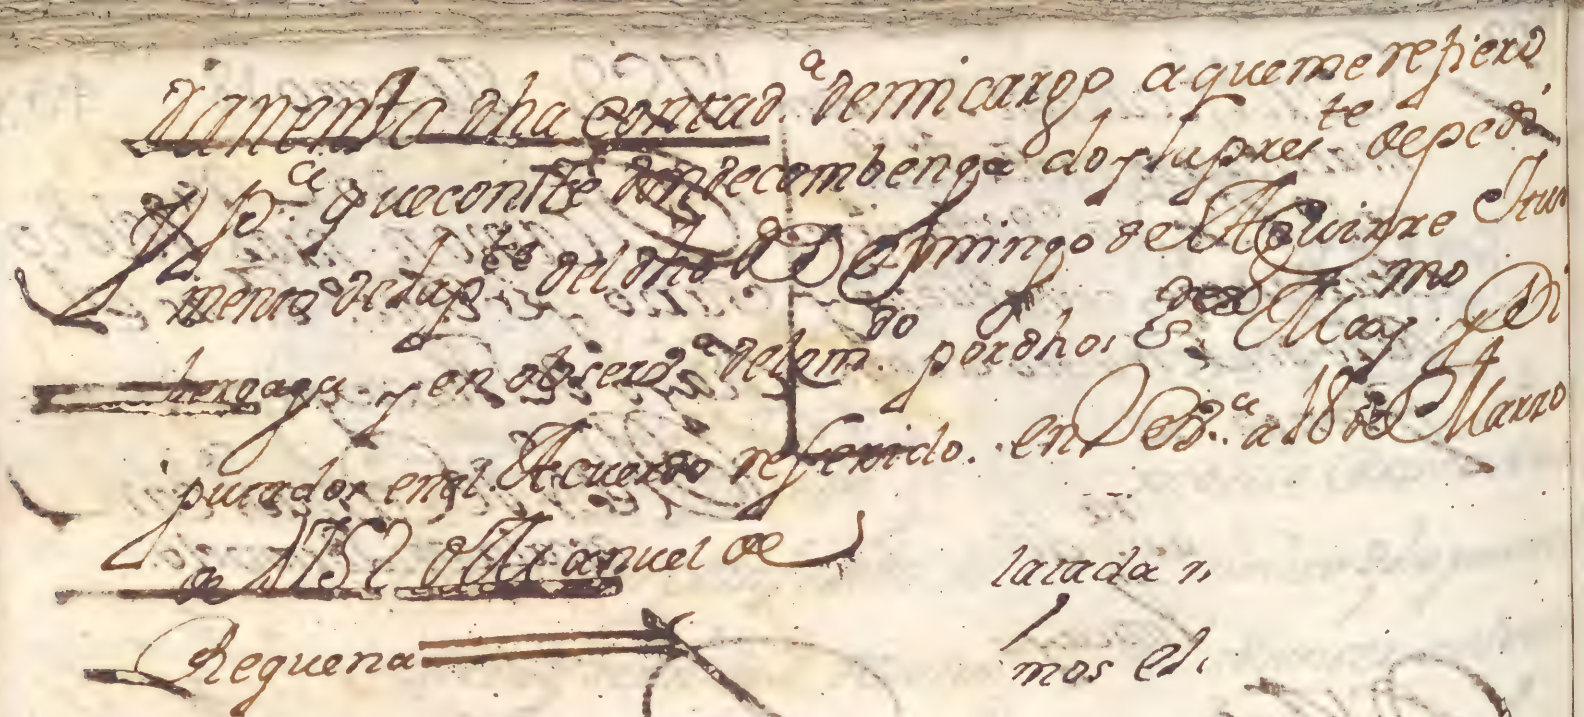 damento dha contad.ª de mi cargo a que me refiero
y p.ª que conste donde combenga doy la pres.te de pedi
mento de la p.te del dho Dn Domingo de Aguirre Itur
beroaga y en obserb.ª de lo m.do por dhos S.res May.mo y Di
putados en el Acuerdo referido. en B.ª a 18 de Marzo
de 1752 Manuel de
Requena
latada n
mos el